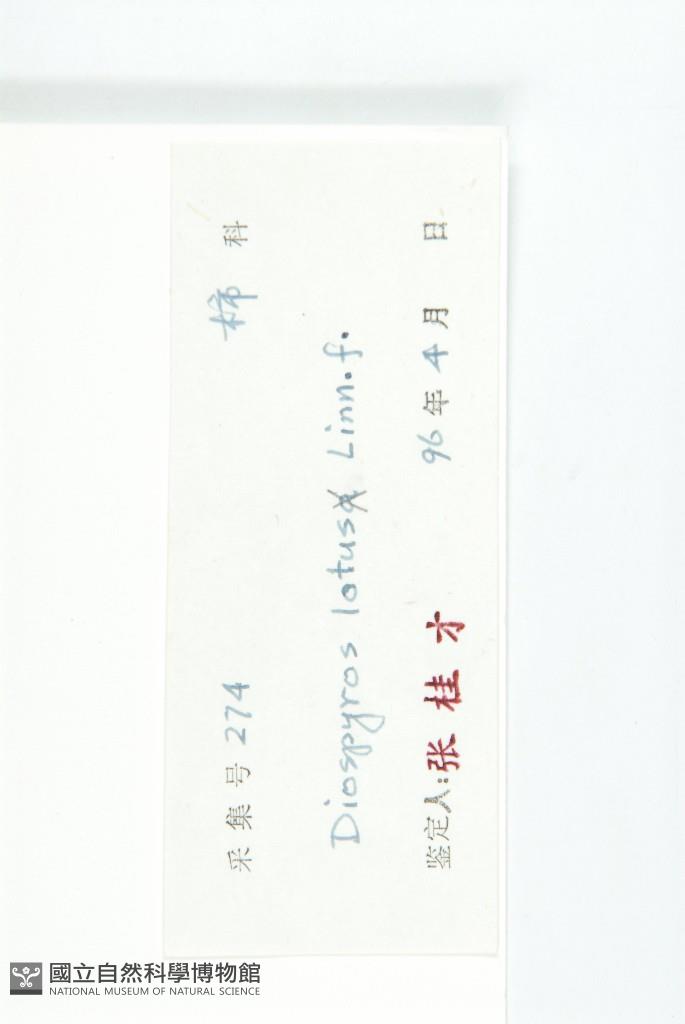 采集号 274 柿 科
Diospyros lotus Linn.f.
鉴定人:张桂才 96年4月 日
國立自然科學博物館
NATIONAL MUSEUM OF NATURAL SCIENCE